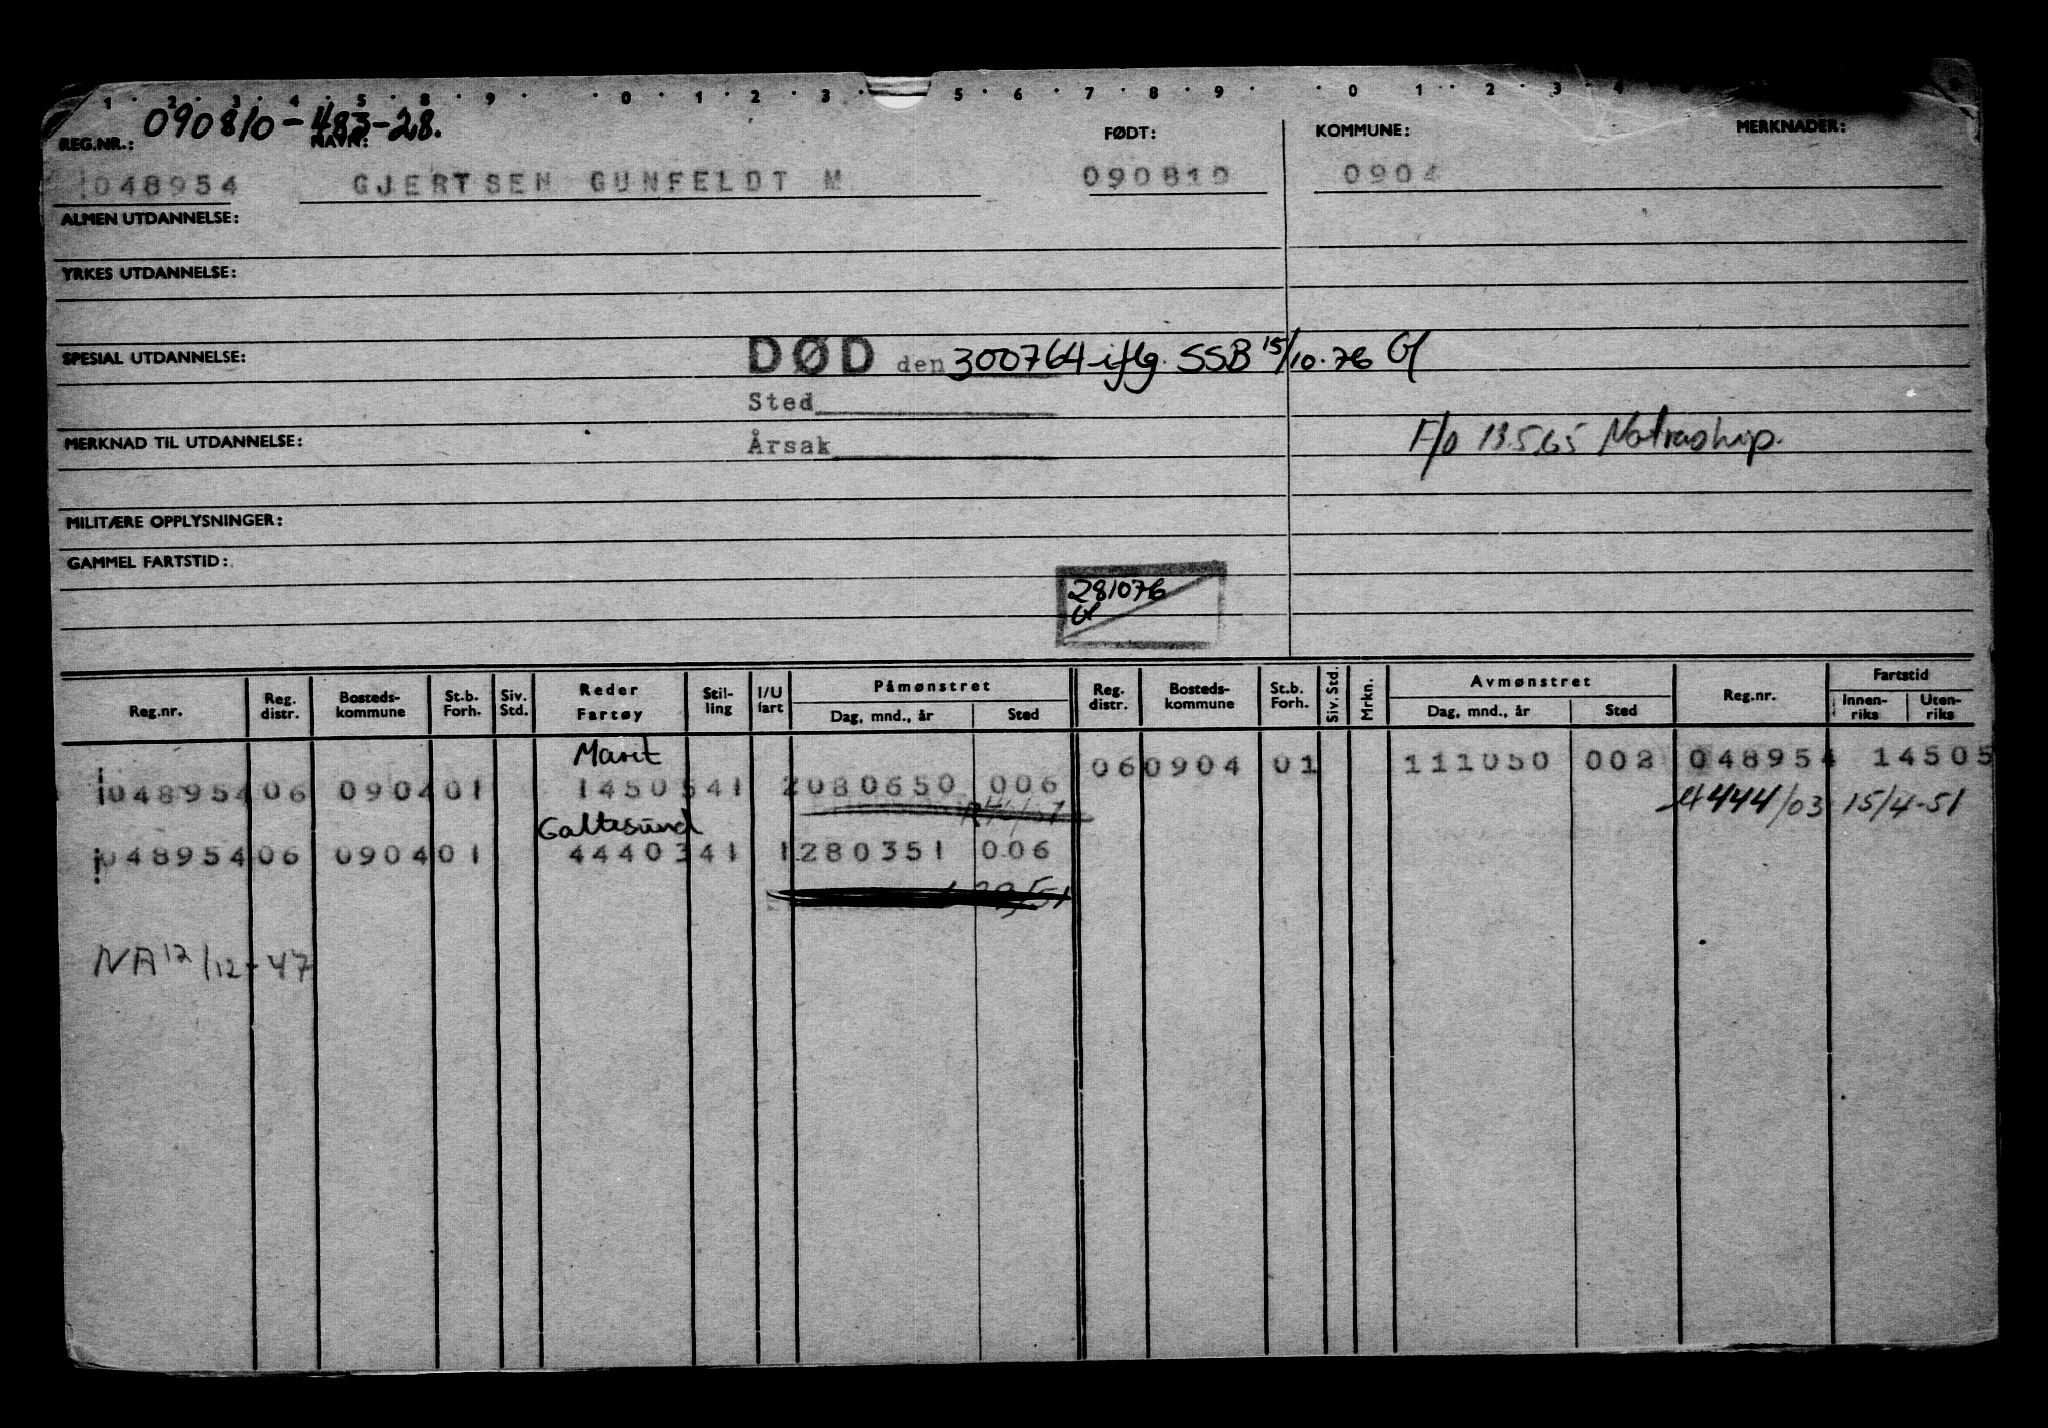 1 · 2 · 3 · 4 · 5 · 8 · 9 · · 0 · 1 · 2 · 3 · 5 · 6 · 7 · 8 · 9 · · 0 1 · · 2 · 3 · 4
090810-483-28.
REG.NR.: NAVN: FØDT: KOMMUNE: MERKNADER:
048954 GJERTSEN GUNFELDT M 090810 0904
ALMEN UTDANNELSE:
YRKES UTDANNELSE:
SPESIAL UTDANNELSE: DØD den 300764 iflg. SSB 15/10.76
Sted
MERKNAD TIL UTDANNELSE: Årsak 18.5.65 Notraship.
MILITÆRE OPPLYSNINGER:
GAMMEL FARTSTID:
281076
Reg.nr. Reg. distr. Bosteds-kommune St.b. Forh. Siv. Std. Reder Fartøy Stil-ling I/U fart Påmønstret Dag, mnd., år Sted Reg. distr. Bosteds-kommune St.b. Forh. Siv. Std. Mrkn. Avmønstret Dag, mnd., år Sted Reg.nr. Fartstid Innen-riks Uten-riks
Marit
06 0904 01 111050 002 048954 14505
048954 06 0904 01 1450541 2 080650 006
4444/03 15/4-51
Galtesund
048954 06 0904 01 4440341 1 280351 006
NA 12/12-47